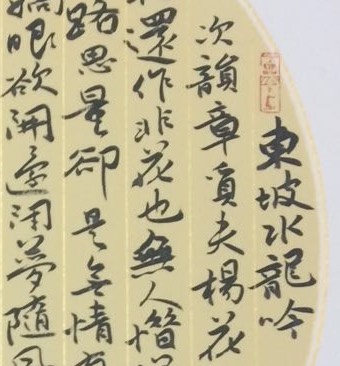 東坡水龍吟
次韻章質夫楊花
還似非花也無人惜
路思量卻是無情有
眼欲開還閉夢隨風